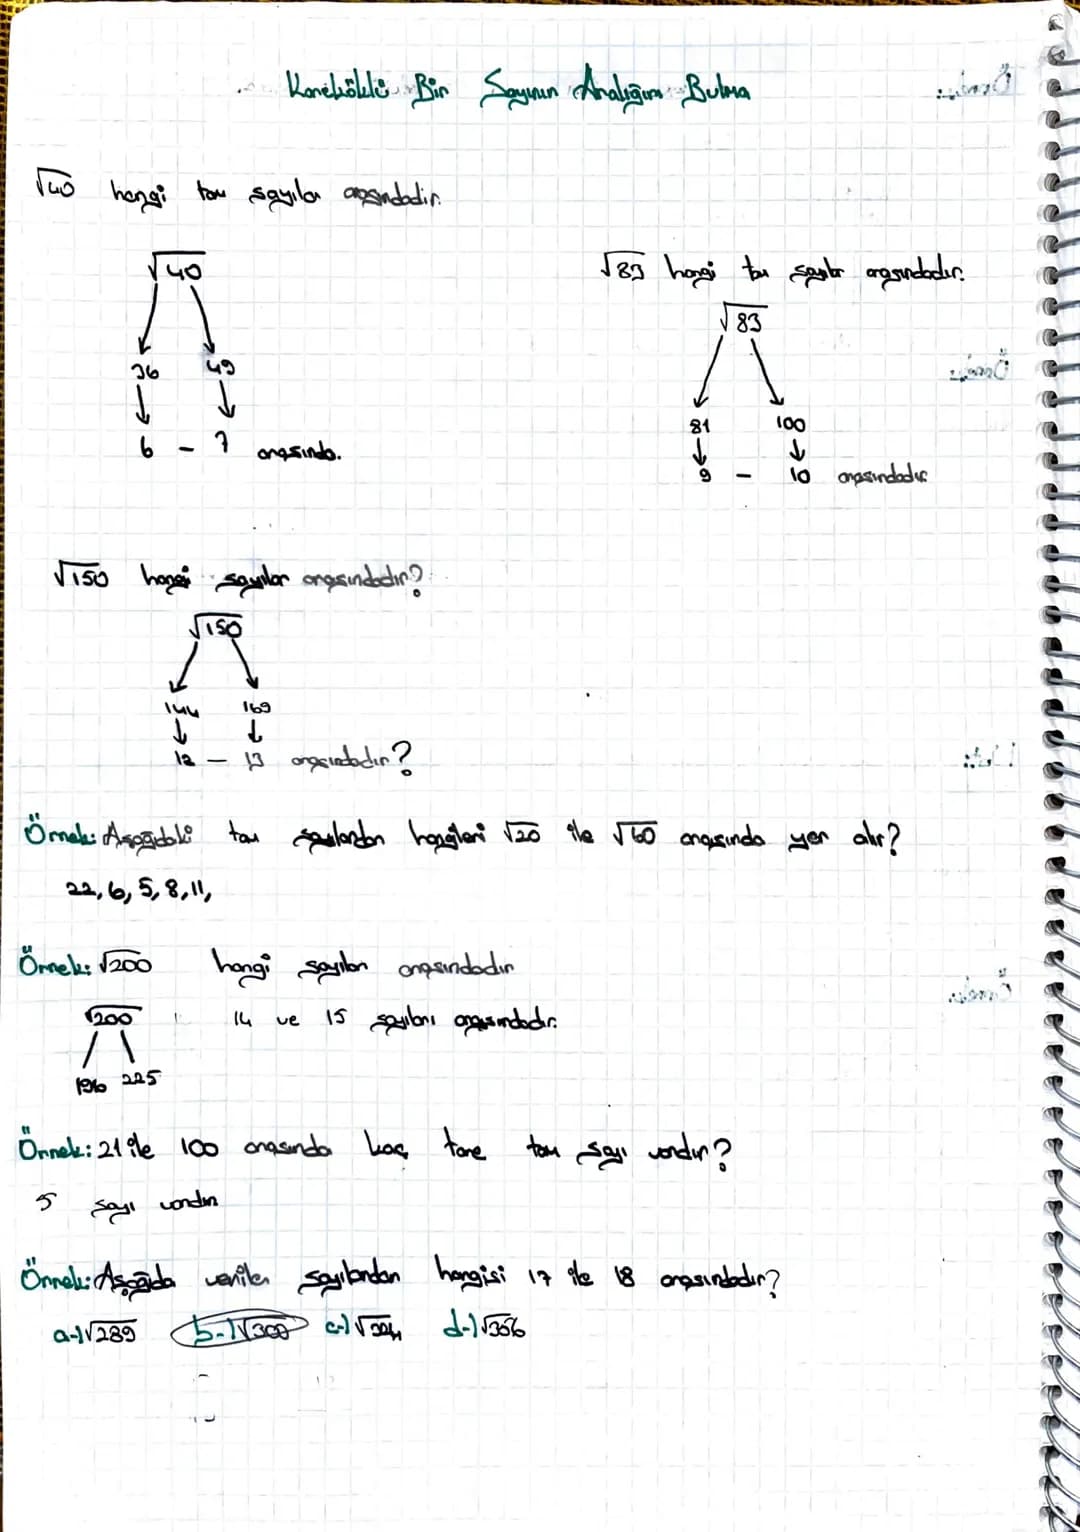 Kareköklü Bir Sayının Aralığını Bulma
√40 hangi tam sayılar arasındadır.
√40
36 49
↓ ↓
6 - 7 arasında.
√83 hangi tam sayılar arasındadır.
√83
81 100
↓ ↓
9 - 10 arasındadır
√150 hangi sayılar arasındadır?
√150
144 169
↓ ↓
12 - 13 arasındadır?
Örnek: Aşağıdaki tam sayılardan hangileri √20 ile √60 arasında yer alır?
22, 6, 5, 8, 11,
Örnek: √200 hangi sayıları arasındadır
√200 14 ve 15 sayıları arasındadır.
196 225
Örnek: 21 ile 100 arasında kaç tane tam sayı vardır?
5 sayı vardır
Örnek: Aşağıda verilen sayılardan hangisi 17 ile 18 arasındadır?
a-) √289 b-) √300 c-) √324 d-) √356